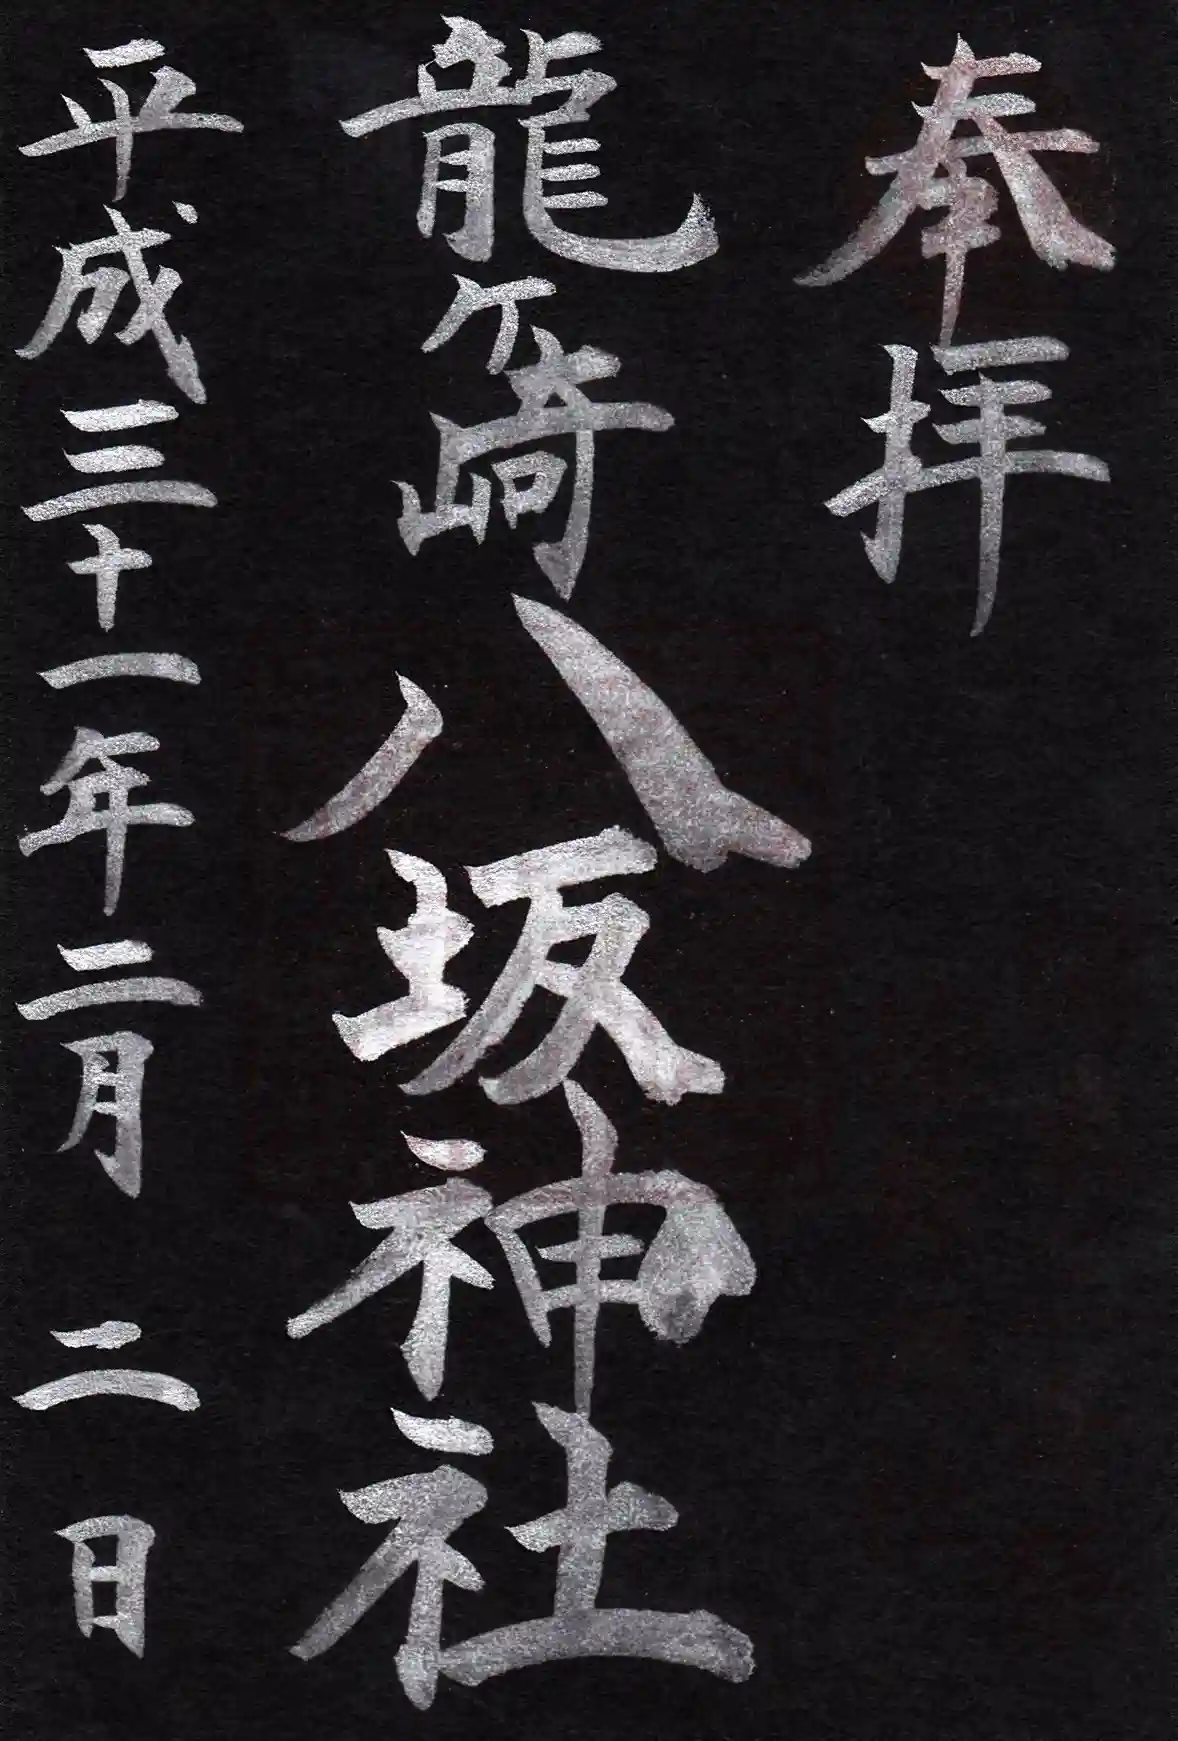 奉拝
龍ケ崎八坂神社
平成三十一年二月二日